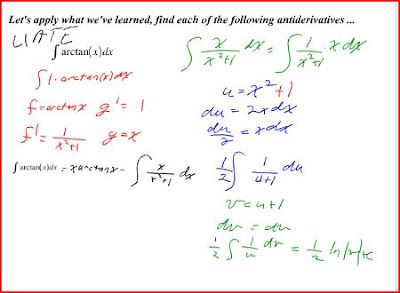 Let's apply what we've learned, find each of the following antiderivatives ...
LIATE
∫ arctan(x)dx
∫ 1·arctan(x)dx
f=arctanx g'=1
f'=1/(x²+1) g=x
∫ arctan(x)dx = xarctanx - ∫ x/(x²+1) dx
∫ x/(x²+1) dx = ∫ 1/(x²+1) · x dx
u=x²+1
du=2xdx
du/2=xdx
1/2 ∫ 1/(u+1) du
v=u+1
dv=du
1/2 ∫ 1/u dv = 1/2 ln|v|+c